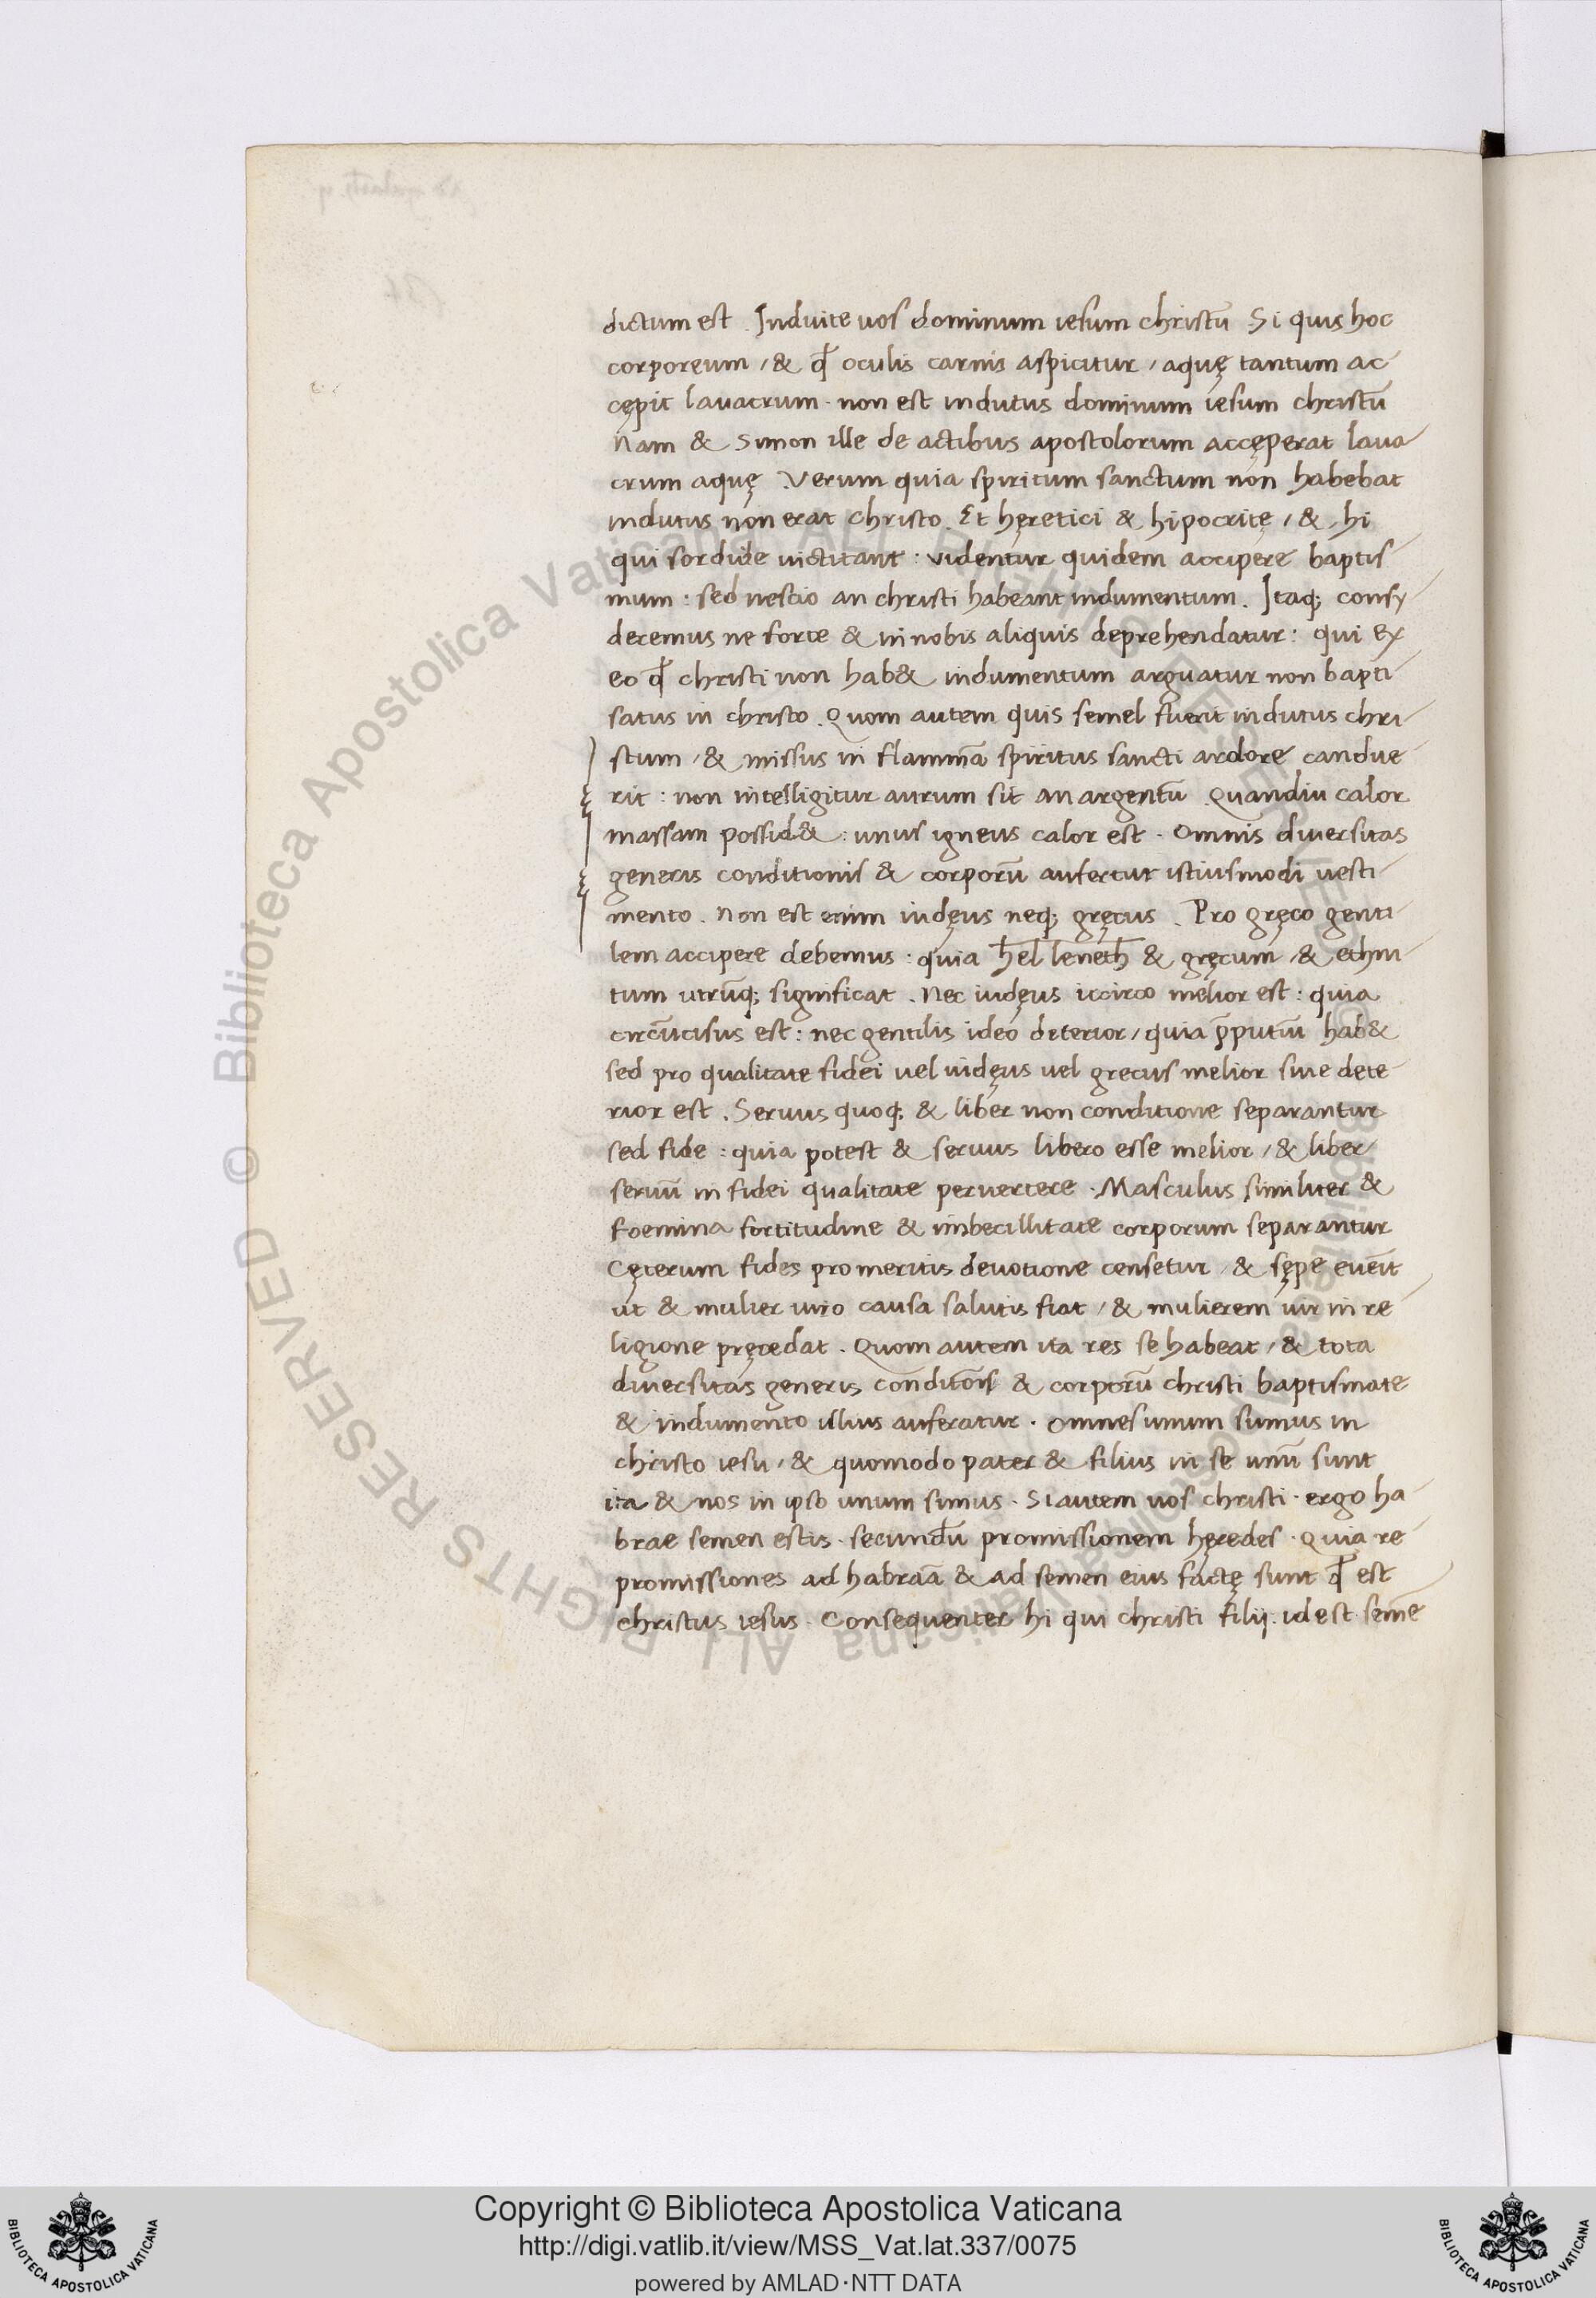 dictum est. Induite uos dominum iesum christū Si quis hoc
corporeum / & qđ oculis carnis aspicitur / aquę tantum ac
cępit lauacrum. non est indutus dominum iesum christū
Nam & Simon ille de actibus apostolorum accęperat laua
crum aquę. Verum quia spiritum sanctum non habebat
indutus non erat christo. Et hęretici & hipocritę / & hi
qui sordide uictitant: videntur quidem accipere baptis
mum: sed nescio an christi habeant indumentum. Itaq; consy
deremus ne forte & in nobis aliquis deprehendatur: qui ex
eo qđ christi non hab& indumentum arguatur non bapti
satus in christo. Quom autem quis semel fuerit indutus chri
stum / & missus in flammā spiritus sancti ardore candue
rit: non intelligitur aurum sit an argentū Quandiu calor
massam possid&: unus igneus calor est. Omnis diuersitas
generis conditionis & corporū aufertur istiusmodi uesti
mento. Non est enim iudęus neq; gręcus. Pro gręco genti
lem accipere debemus: quia h̄el leneth̄ & gręcum / & ethni
tum utrūq; significat. Nec iudęus iccirco melior est: quia
circūcisus est: nec gentilis ideo deterior / quia p̄putiū hab&
sed pro qualitate fidei uel iudęus uel grecus melior siue dete
rior est. Seruus quoq; & liber non conditione separantur
sed fide: quia potest & seruus libero esse melior / & liber
seruū in fidei qualitate peruertere. Masculus similiter &
foemina fortitudine & imbecillitate corporum separantur
Cęterum fides pro meritis deuotione censetur / & sępe euēit
ut & mulier uiro causa salutis fiat / & mulierem uir in re
ligione pręcedat. Quom autem ita res se habeat / & tota
diuersitas generis conditōis & corporū christi baptismate
& indumento illius auferatur. Omnes unum sumus in
christo iesu / & quomodo pater & filius in se unū sunt
ita & nos in ipso unum simus. Si autem uos christi. ergo ha
brae semen estis. secundū promissionem hęredes. Quia re
promissiones ad habraā & ad semen eius factę sunt qđ est
christus iesus. Consequenter hi qui christi filij. id est semē
Copyright © Biblioteca Apostolica Vaticana
http://digi.vatlib.it/view/MSS_Vat.lat.337/0075
powered by AMLAD·NTT DATA